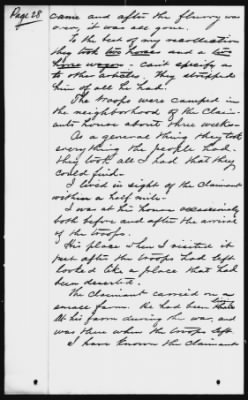 Page 28
came and after the flurry was
over, it was all gone.
To the best of my recollection
they took two horses and a two
horse wagon - can't specify as
to other articles, they stripped
him of all he had.
The troops were camped in
the neighborhood of the claim-
ants house about three weeks.
As a general thing they took
everything the people had.
They took all I had that they
could find.
I lived in sight of the claimant
within a half mile.
I was at his house occasionally
both before and after the arrival
of the troops.
His place when I visited it
just after the troops had left
looked like a place that had
been deserted.
The claimant carried on a
small farm. He had been
at his farm during the war, and
was there when the troops left.
I have known the claimant